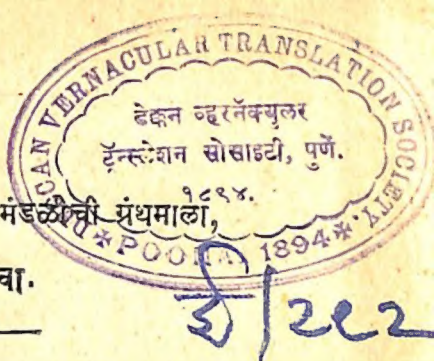 DECCAN VERNACULAR TRANSLATION SOCIETY.
डेक्कन व्हरनॅक्युलर
ट्रॅन्स्लेशन सोसाइटी, पुणें.
१८९४.
POONA 1894
मंडळीची ग्रंथमाला,
वा.